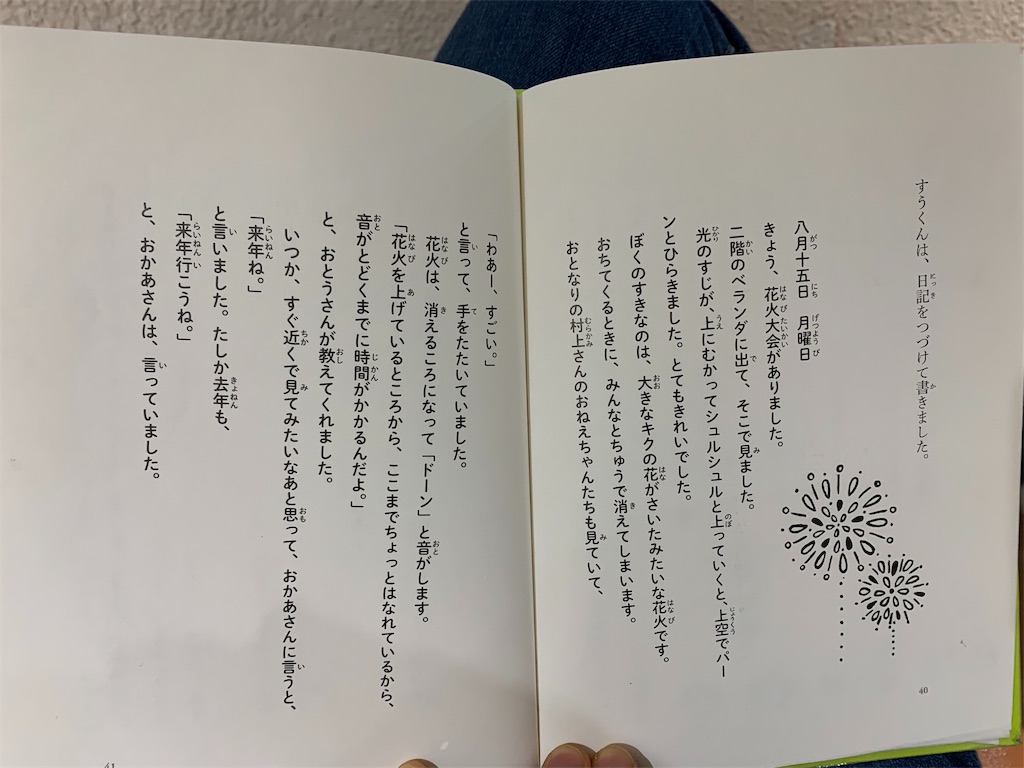 すうくんは、日記をつづけて書きました。
八月十五日　月曜日
きょう、花火大会がありました。
二階のベランダに出て、そこで見ました。
光のすじが、上にむかってシュルシュルと上っていくと、上空でパー
ンとひらきました。とてもきれいでした。
ぼくのすきなのは、大きなキクの花がさいたみたいな花火です。
おちてくるときに、みんなとちゅうで消えてしまいます。
おとなりの村上さんのおねえちゃんたちも見ていて、
40
「わあー、すごい。」
と言って、手をたたいていました。
花火は、消えるころになって「ドーン」と音がします。
「花火を上げているところから、ここまでちょっとはなれているから、
音がとどくまでに時間がかかるんだよ。」
と、おとうさんが教えてくれました。
いつか、すぐ近くで見てみたいなあと思って、おかあさんに言うと、
「来年ね。」
と言いました。たしか去年も、
「来年行こうね。」
と、おかあさんは、言っていました。
41